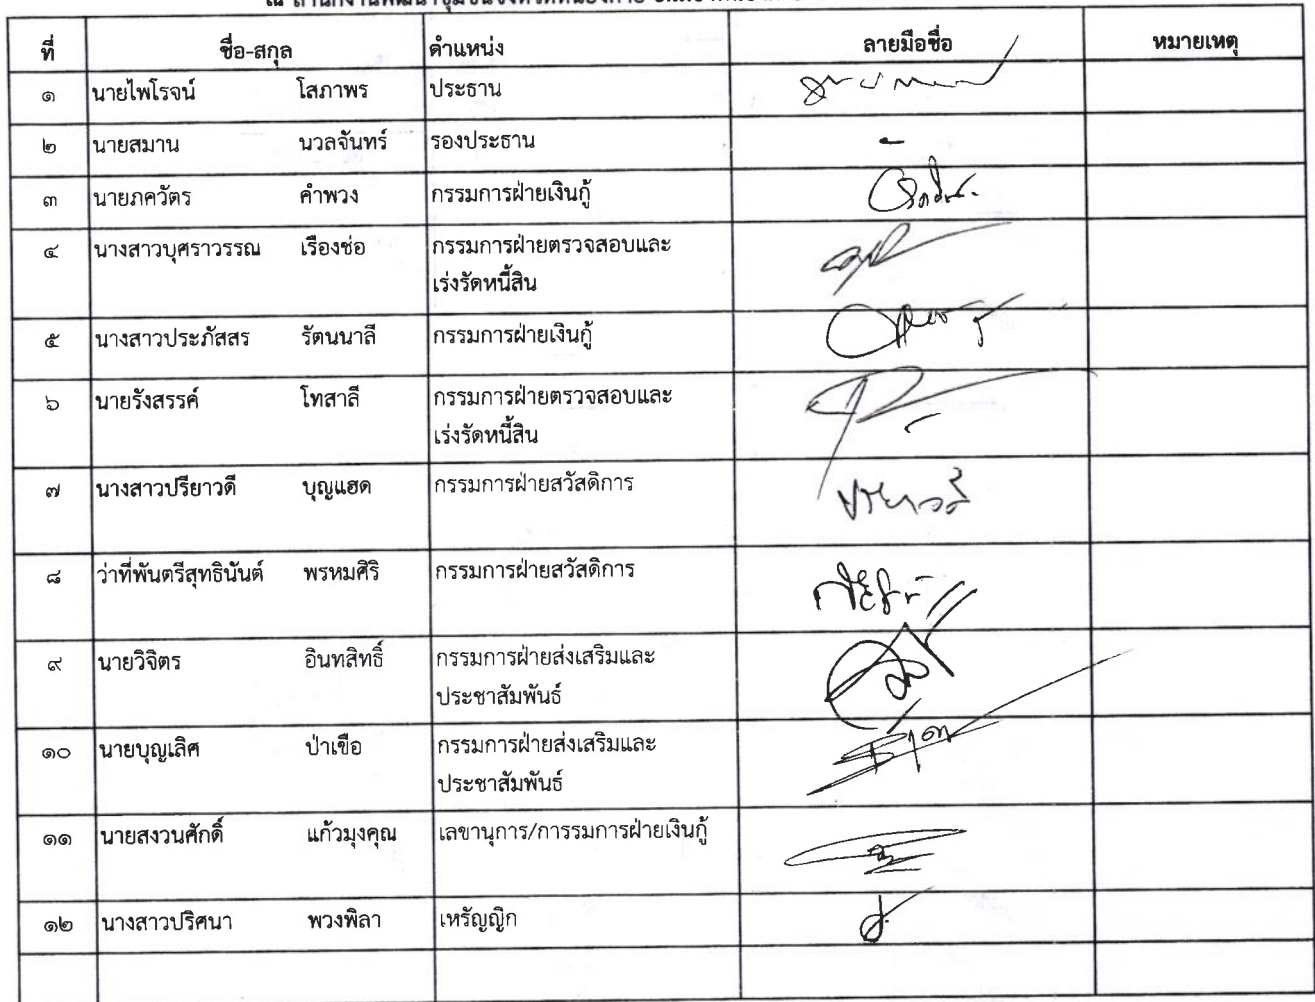 ที่ ชื่อ-สกุล ตำแหน่ง ลายมือชื่อ หมายเหตุ
๑ นายไพโรจน์ โสภาพร ประธาน
๒ นายสมาน นวลจันทร์ รองประธาน -
๓ นายภควัตร คำพวง กรรมการฝ่ายเงินกู้
๔ นางสาวบุศราวรรณ เรืองช่อ กรรมการฝ่ายตรวจสอบและ
เร่งรัดหนี้สิน
๕ นางสาวประภัสสร รัตนนาลี กรรมการฝ่ายเงินกู้
๖ นายรังสรรค์ โทสาลี กรรมการฝ่ายตรวจสอบและ
เร่งรัดหนี้สิน
๗ นางสาวปรียาวดี บุญแฮด กรรมการฝ่ายสวัสดิการ
๘ ว่าที่พันตรีสุทธินันต์ พรหมศิริ กรรมการฝ่ายสวัสดิการ
๙ นายวิจิตร อินทสิทธิ์ กรรมการฝ่ายส่งเสริมและ
ประชาสัมพันธ์
๑๐ นายบุญเลิศ ป่าเขือ กรรมการฝ่ายส่งเสริมและ
ประชาสัมพันธ์
๑๑ นายสงวนศักดิ์ แก้วมุงคุณ เลขานุการ/การรมการฝ่ายเงินกู้
๑๒ นางสาวปริศนา พวงพิลา เหรัญญิก